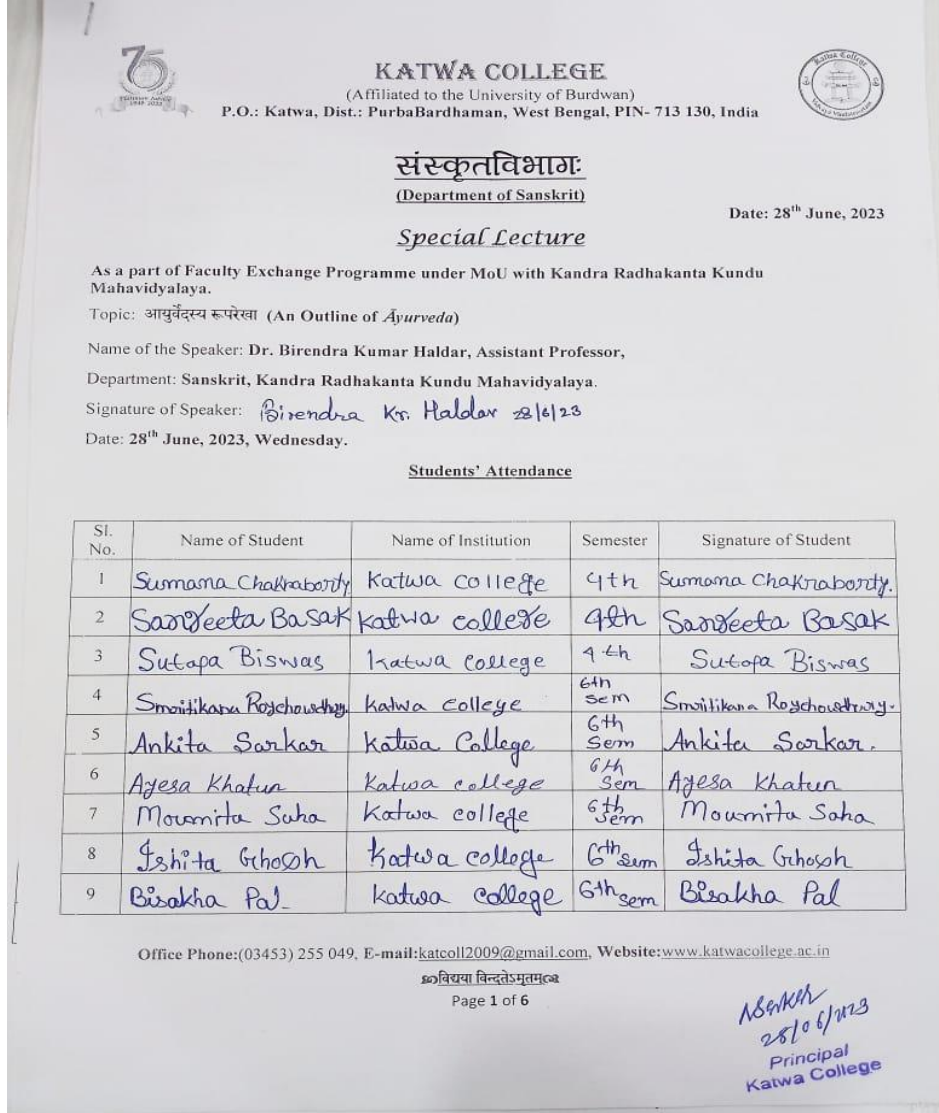 75
KATWA COLLEGE
(Affiliated to the University of Burdwan)
P.O.: Katwa, Dist.: PurbaBardhaman, West Bengal, PIN- 713 130, India
Katwa College
संस्कृतविभागः
(Department of Sanskrit)
Date: 28th June, 2023
Special Lecture
As a part of Faculty Exchange Programme under MoU with Kandra Radhakanta Kundu
Mahavidyalaya.
Topic: आयुर्वेदस्य रूपरेखा (An Outline of Āyurveda)
Name of the Speaker: Dr. Birendra Kumar Haldar, Assistant Professor,
Department: Sanskrit, Kandra Radhakanta Kundu Mahavidyalaya.
Signature of Speaker: Birendra Kr. Haldar 28/6/23
Date: 28th June, 2023, Wednesday.
Students' Attendance
Sl. No. Name of Student Name of Institution Semester Signature of Student
1 Sumana Chakraborty Katwa College 4th Sumana Chakraborty.
2 Sangeeta Basak Katwa college 4th Sangeeta Basak
3 Sutapa Biswas Katwa College 4th Sutapa Biswas
4 Smritikana Roychowdhury. Katwa college 6th Sem Smritikana Roychowdhury.
5 Ankita Sarkar Katwa College 6th Sem Ankita Sarkar.
6 Ayesa Khatun Katwa college 6th Sem Ayesa Khatun
7 Moumita Saha Katwa college 6th Sem Moumita Saha
8 Ishita Ghosh Katwa college 6th Sem Ishita Ghosh
9 Bisakha Pal Katwa college 6th Sem Bisakha Pal
Office Phone:(03453) 255 049, E-mail:katcoll2009@gmail.com, Website:www.katwacollege.ac.in
विद्यया विन्दतेऽमृतम्
Page 1 of 6
28/06/2023
Principal
Katwa College